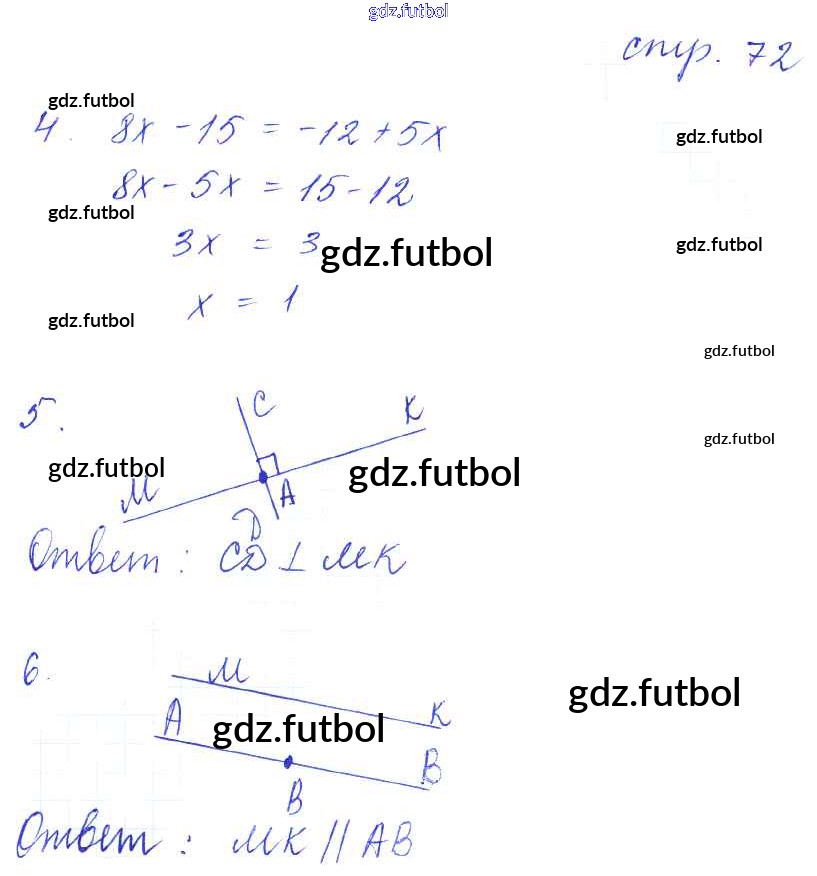 gdz.futbol
стр. 72
gdz.futbol
4. 8x - 15 = -12 + 5x
gdz.futbol
8x - 5x = 15 - 12
gdz.futbol
3x = 3
gdz.futbol
gdz.futbol
x = 1
gdz.futbol
gdz.futbol
5.
C
K
gdz.futbol
gdz.futbol
gdz.futbol
M
A
D
Ответ: CD ⊥ MK
6.
M
gdz.futbol
A
K
gdz.futbol
B
B
Ответ: MK // AB